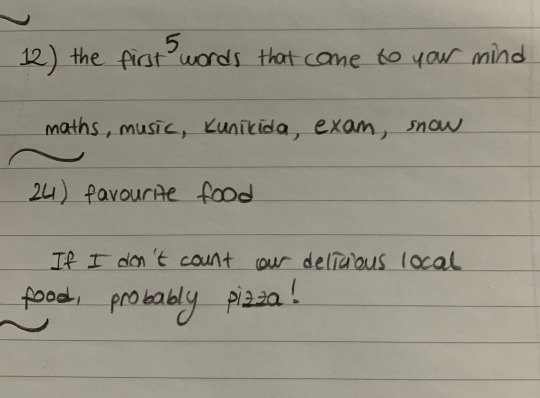 12) the first 5 words that come to your mind
maths, music, kunikida, exam, snow
24) favourite food
If I don't count our delicious local
food, probably pizza!